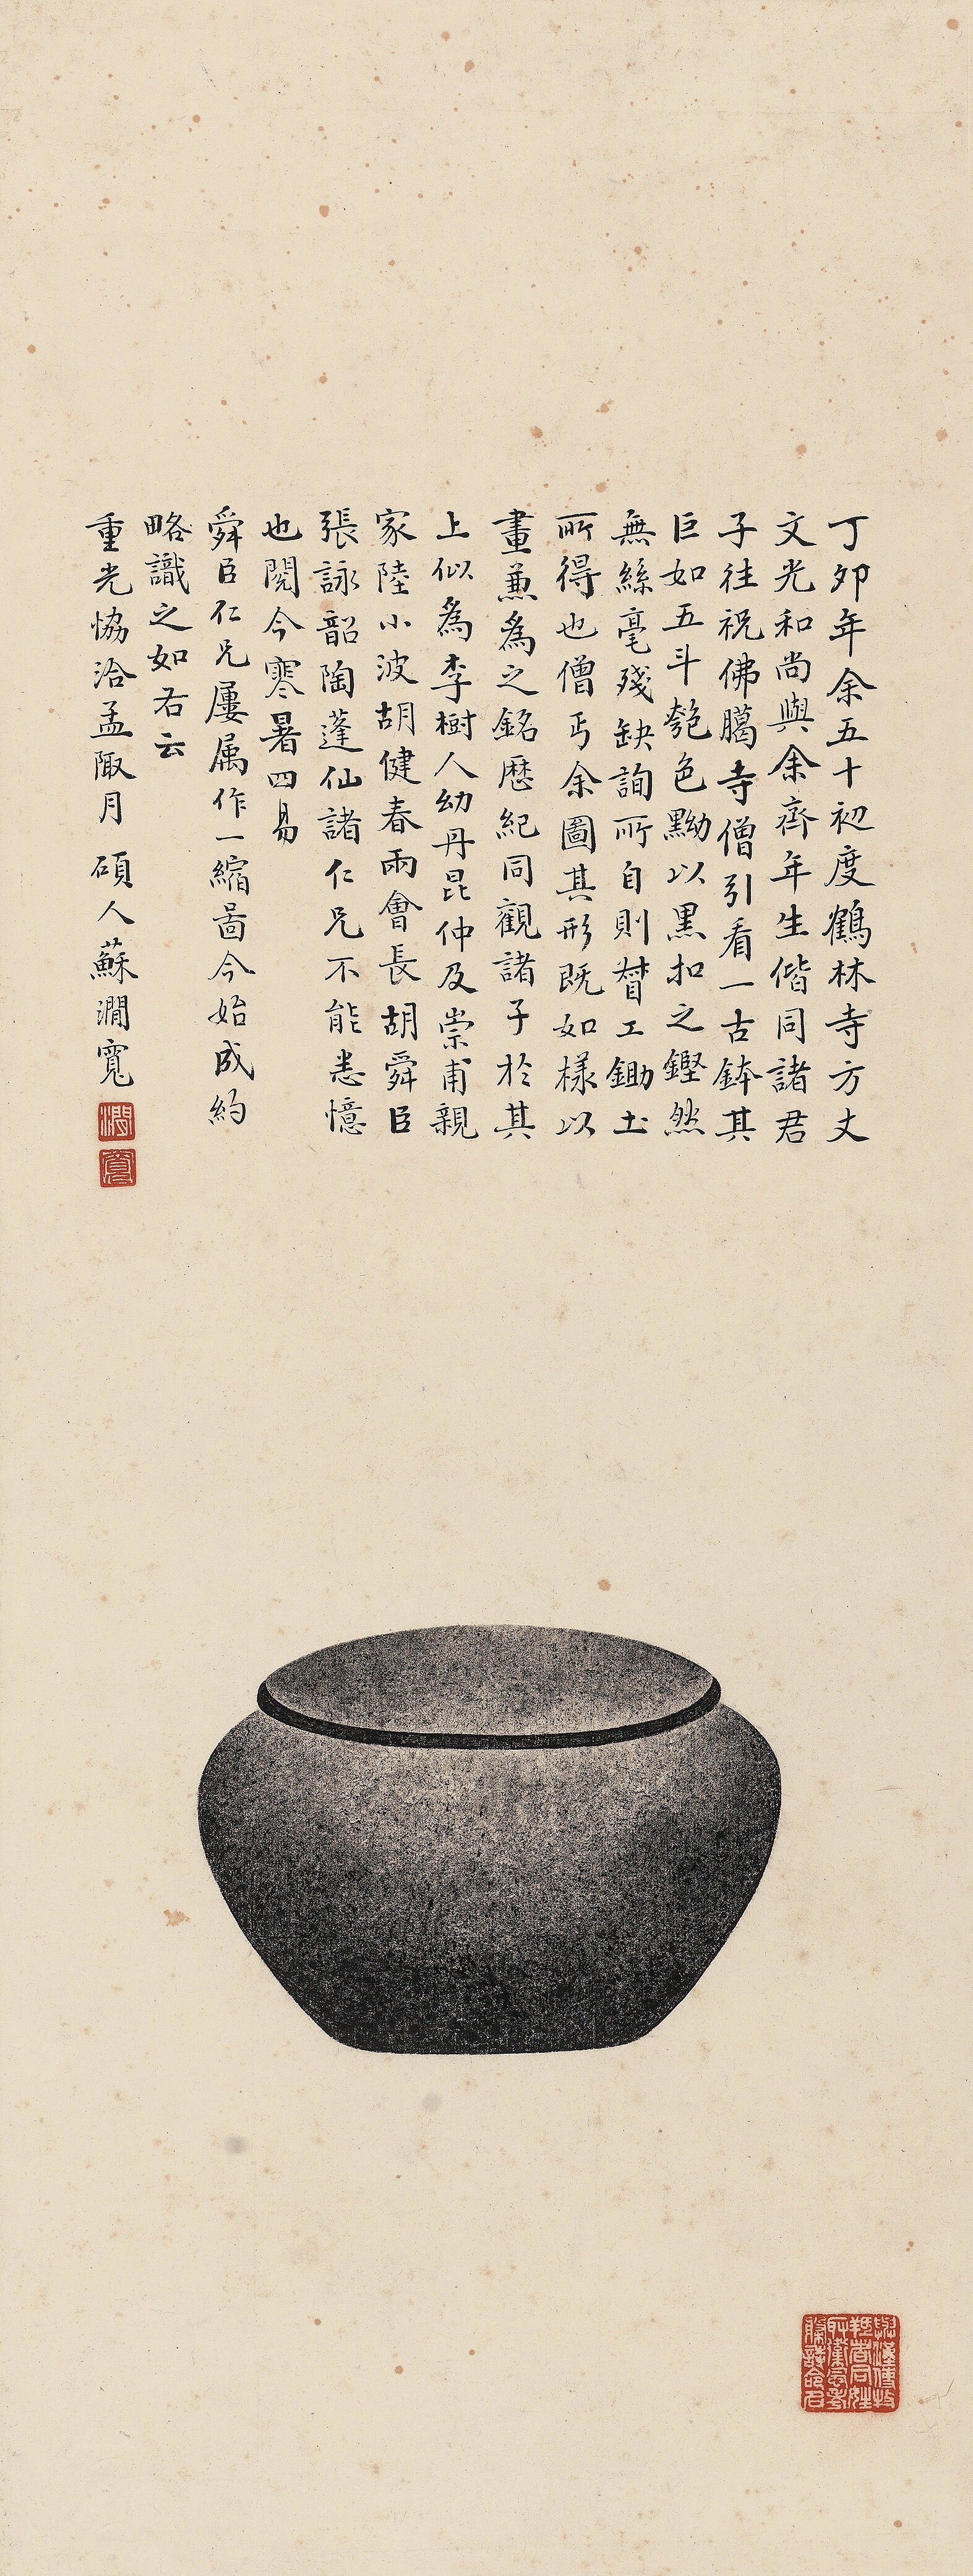 丁夘年余五十初度鶴林寺方丈
文光和尚與余齊年生偕同諸君
子往祝佛臈寺僧引看一古鉢其
巨如五斗匏色黝以黑扣之鏗然
無絲毫殘缺詢所自則督工鋤土
所得也僧丐余圖其形既如樣以
畫兼為之銘歴紀同觀諸子於其
上似為李樹人幼丹昆仲及崇甫親
家陸小波胡健春兩會長胡舜臣
張詠韶陶蓬仙諸仁兄不能悉憶
也閱今寒暑四易
舜臣仁兄屢属作一縮啚今始成約
略識之如右云
重光恊洽孟陬月 碩人蘇澗寬
澗
寬